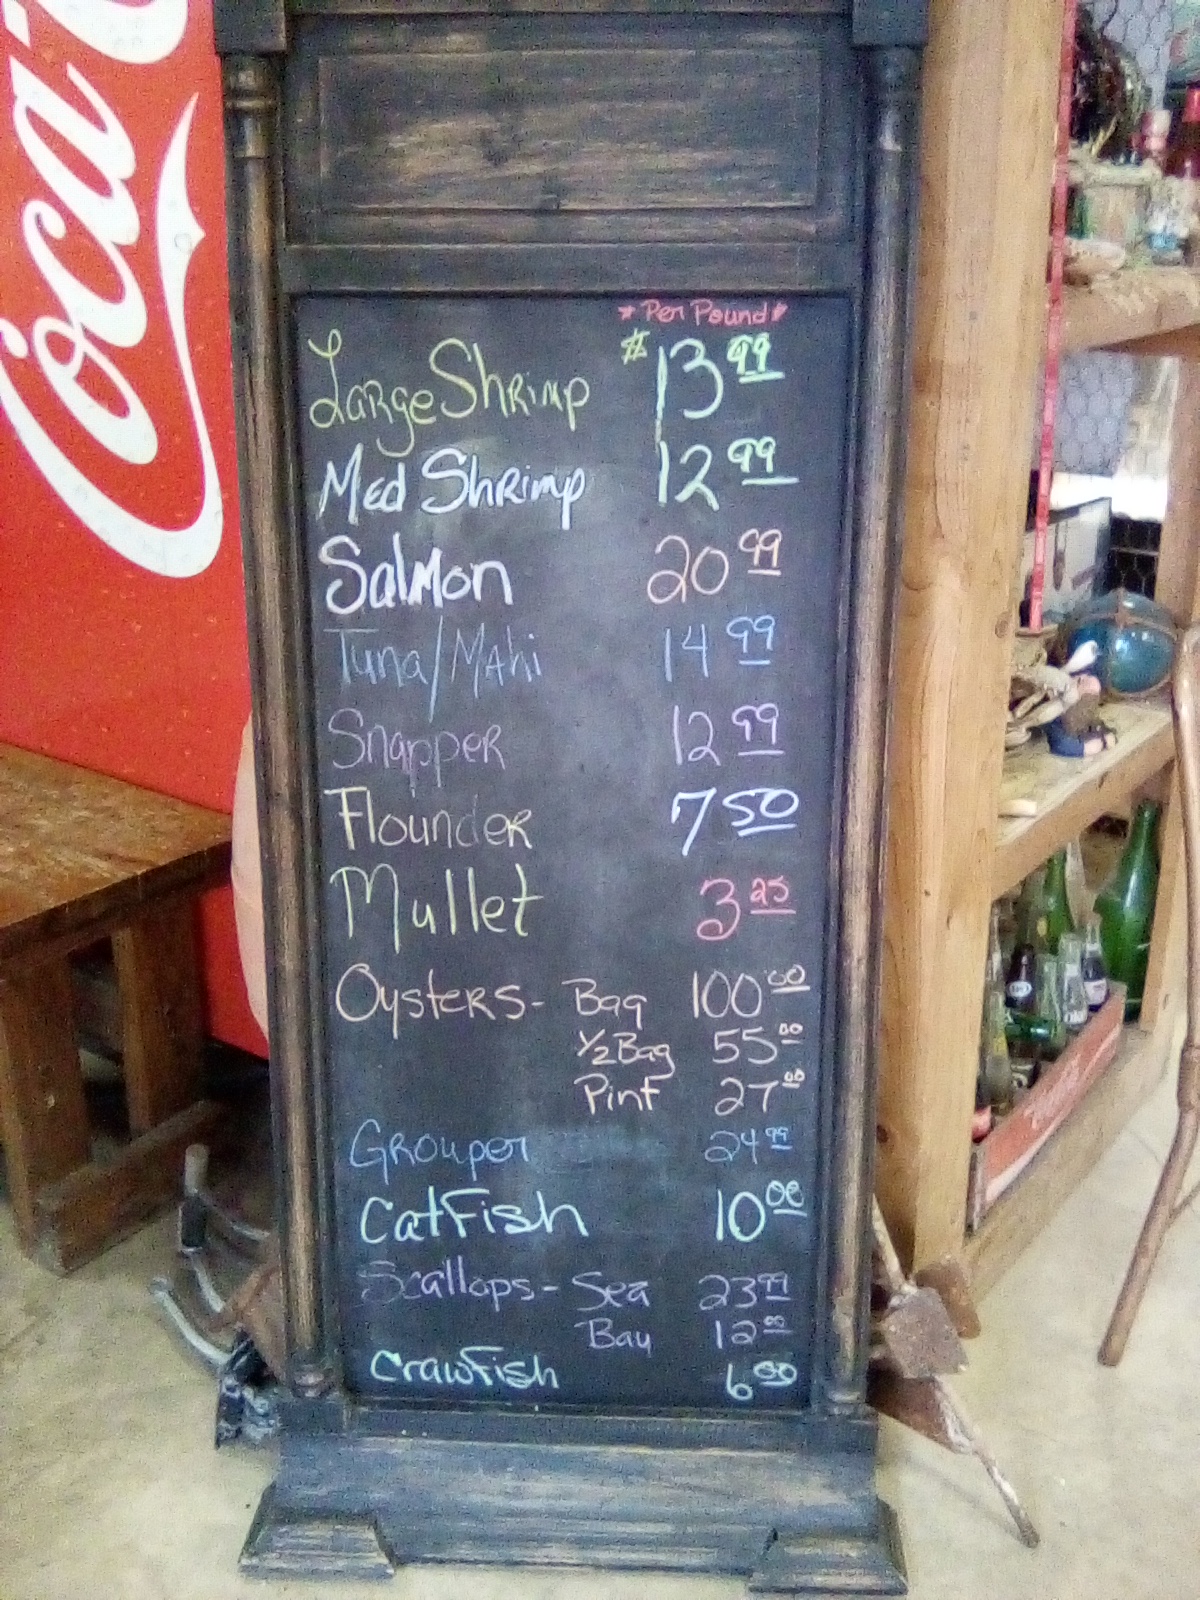 Coca
* Per Pound *
Large Shrimp $13.99
Med Shrimp 12.99
Salmon 20.99
Tuna/Mahi 14.99
Snapper 12.99
Flounder 7.50
Mullet 3.25
Oysters - Bag 100.00
1/2 Bag 55.00
Pint 27.00
Grouper 24.99
CatFish 10.00
Scallops - Sea 23.99
Bay 12.00
CrawFish 6.00